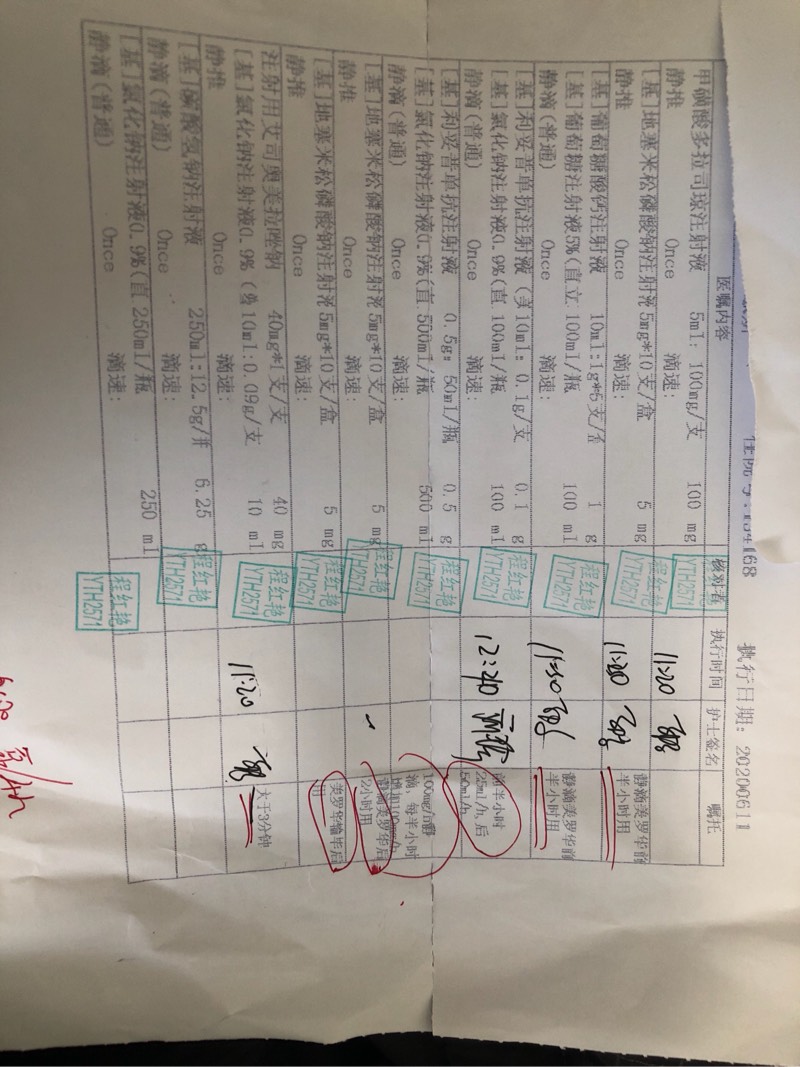 住院号:154168 执行日期: 20200611
医嘱内容 核对者 执行时间 护士签名 嘱托
甲磺酸多拉司琼注射液 5ml: 100mg/支 100 mg
静推 Once 滴速: YTH2571 11:20
[基]地塞米松磷酸钠注射液 5mg*10支/盒 5 mg 程红艳 静滴美罗华前
静推 Once 滴速: YTH2571 11:20 半小时用
[基]葡萄糖酸钙注射液 10ml:1g*5支/盒 1 g 程红艳 静滴美罗华前
[基]葡萄糖注射液5%(直立 100ml/瓶 100 ml YTH2571 11:50 半小时用
静滴(普通) Once 滴速:
[基]利妥昔单抗注射液 10ml: 0.1g/支 0.1 g 程红艳 前半小时
[基]氯化钠注射液0.9%(直 100ml/瓶 100 ml YTH2571 12:40 225ml/h,后
静滴(普通) Once 滴速: 50ml/h
[基]利妥昔单抗注射液 0.5g: 50ml/瓶 0.5 g 程红艳 100mg/h静
[基]氯化钠注射液0.9%(直 500ml/瓶 500 ml YTH2571 滴,每半小时
静滴(普通) Once 滴速: 增加100mg/h
[基]地塞米松磷酸钠注射液 5mg*10支/盒 5 mg 程红艳 静滴美罗华后
静推 Once 滴速: YTH2571 2小时用
[基]地塞米松磷酸钠注射液 5mg*10支/盒 5 mg 程红艳 美罗华输毕后
静推 Once 滴速: YTH2571 用
注射用艾司奥美拉唑钠 40mg*1支/支 40 mg 程红艳 大于3分钟
[基]氯化钠注射液0.9% 10ml:0.09g/支 10 ml YTH2571 11:20
静推 Once 滴速:
[基]碳酸氢钠注射液 250ml:12.5g/瓶 6.25 g 程红艳
静滴(普通) Once 滴速: YTH2571
[基]氯化钠注射液0.9%(直 250ml/瓶 250 ml 程红艳
静滴(普通) Once 滴速: YTH2571